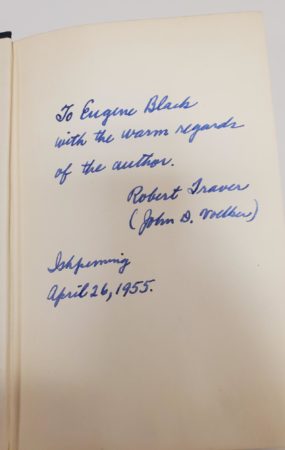 To Eugene Black
with the warm regards
of the author.
Robert Traver
(John D. Voelker)
Ishpeming
April 26, 1955.